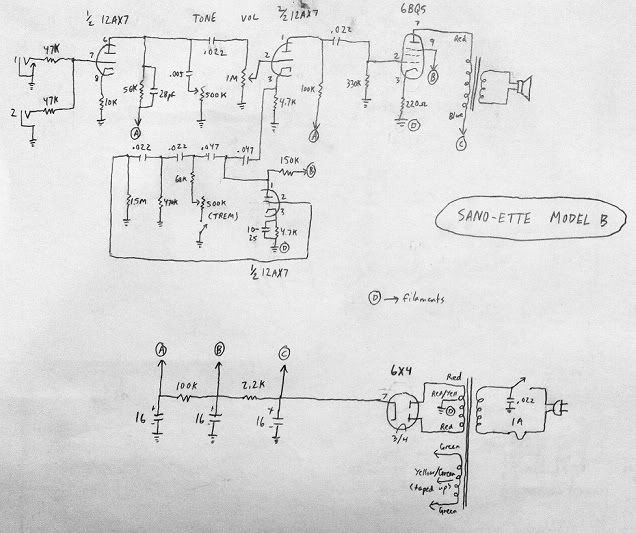 ½ 12AX7 TONE VOL ½ 12AX7 6BQ5
1 47K 7 6 .022 1 .022 7 9 Red
8 .005 1M 2 3 2 3 B
47K 10K 56K 28pf 500K 4.7K 100K 330K 220Ω Blue
2 A A D C
.022 .022 .047 .047 150K B
68K 1 2 3
1.5M 470K 500K (TREM) 10-25 4.7K
D
½ 12AX7
SANO-ETTE MODEL B
D → filaments
A B C 6X4 Red
100K 2.2K 7 Red/Yel .022
+ + + D
16 16 16 3/4 Red 1A
Green
Yellow/Green
(taped up)
Green